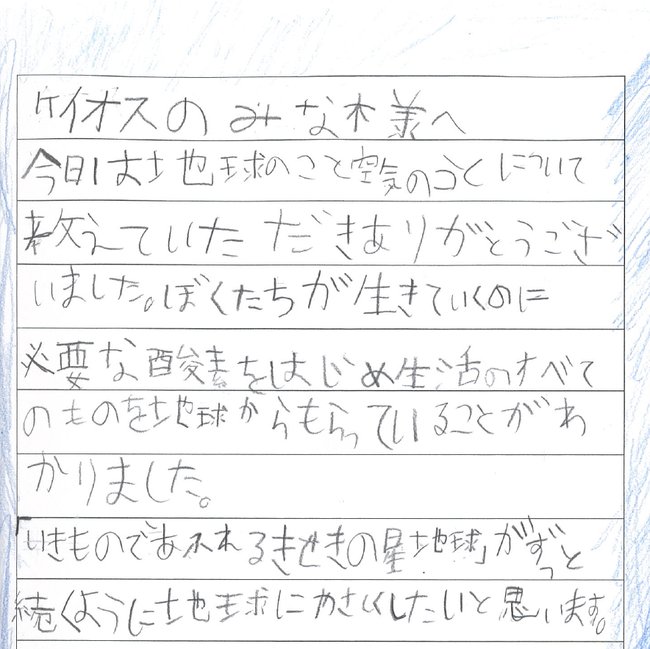 ケイオスのみな様へ
今日は地球のこと空気のことについて
教えていただきありがとうござ
いました。ぼくたちが生きていくのに
必要な酸素をはじめ生活のすべて
のものを地球からもらっていることがわ
かりました。
「いきものであふれるきせきの星地球」がずっと
続くように地球にやさしくしたいと思います。